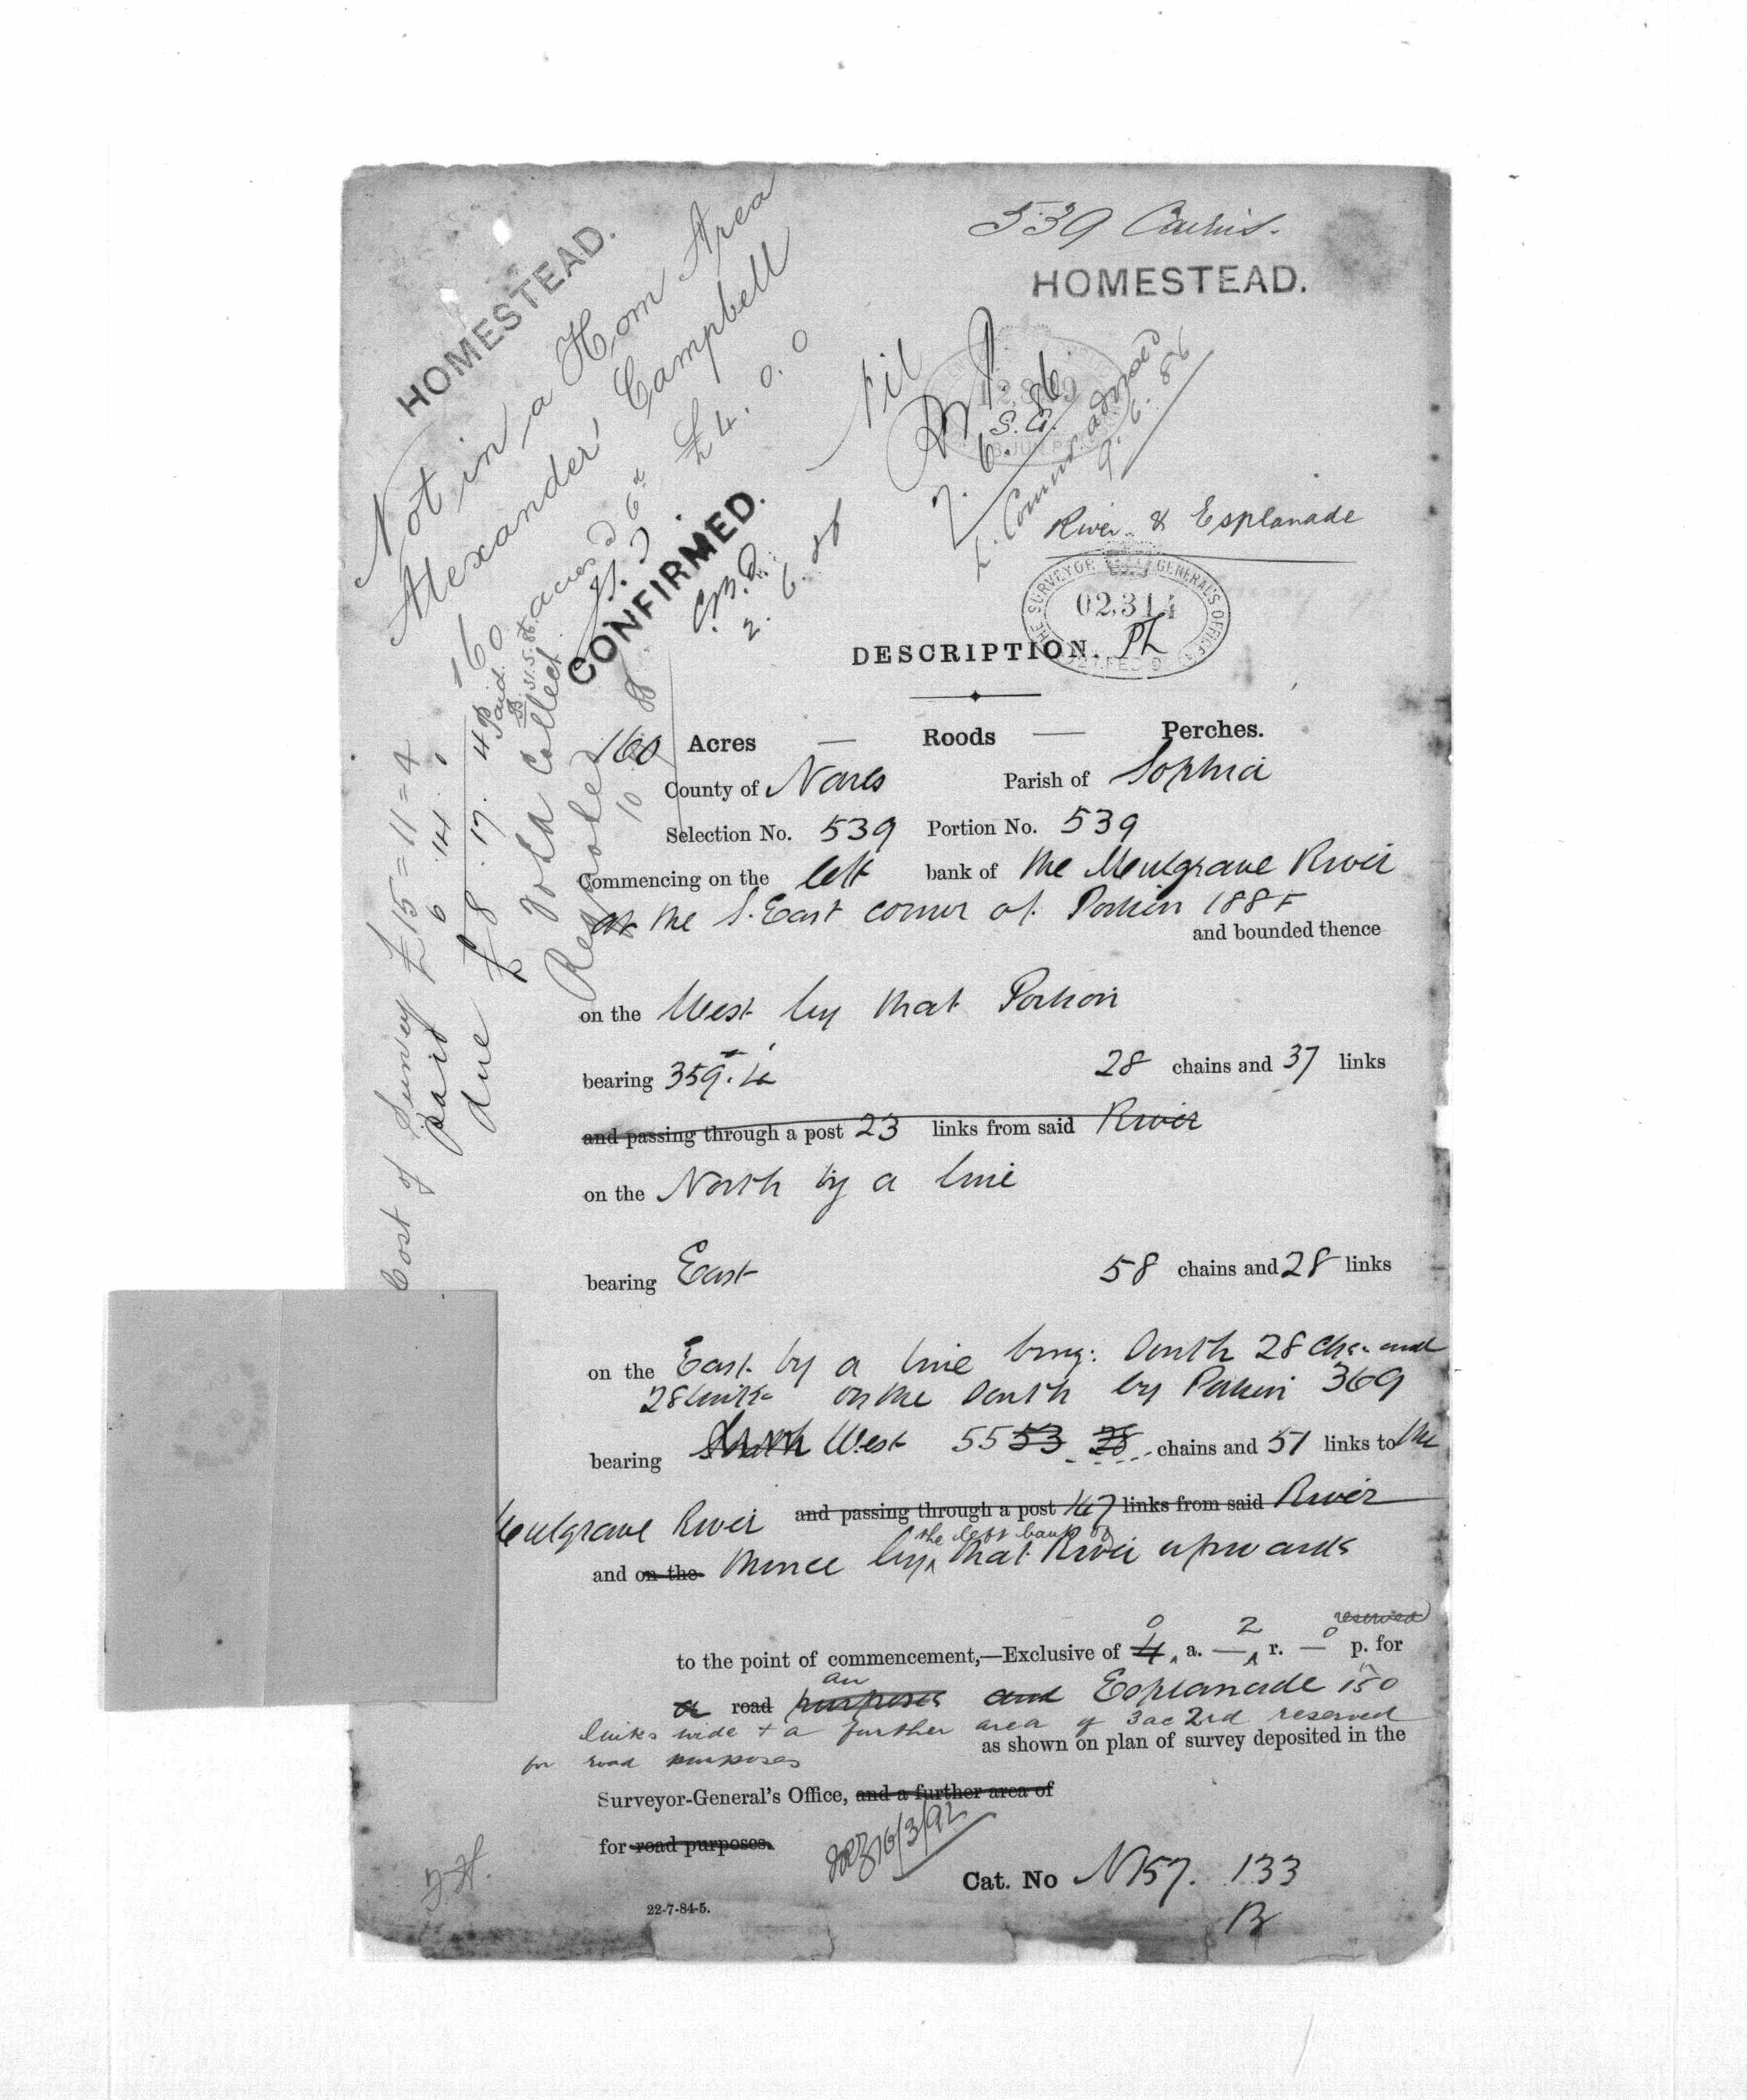 539 Cairns.
HOMESTEAD.
HOMESTEAD.
Not in a Hom Area
Alexander Campbell
160 acres @ 6d £4. 0. 0
Paid
31.5.86
CONFIRMED.
2. 6. 86
7. 6. 86
S.G.
L. Commr. advised
9. 6. 86
River & Esplanade
THE SURVEYOR GENERAL'S OFFICE
02,314
27 FEB 9
DESCRIPTION.
160 Acres — Roods — Perches.
County of Nares Parish of Sophia
Selection No. 539 Portion No. 539
Commencing on the left bank of the Mulgrave River
at the S. East corner of Portion 188F
and bounded thence
on the West by that Portion
bearing 359. 28 chains and 37 links
and passing through a post 23 links from said River
on the North by a line
bearing East 58 chains and 28 links
on the East by a line brng: South 28 chs. and
28 links on the South by Portion 369
bearing South West 55 53 28 chains and 51 links to the
Mulgrave River and passing through a post 147 links from said River
and on the thence by the left bank of that River upwards
reserved
0 2 0
to the point of commencement,—Exclusive of 4 a. — r. — p. for
an
a road purposes and Esplanade 150
links wide + a further area of 3ac 2rd reserved
as shown on plan of survey deposited in the
for road purposes
Surveyor-General's Office, and a further area of
for road purposes.
16/3/92
Cat. No N157. 133
22-7-84-5.
Cost of Survey £15 = 11 = 4
paid 6 . 14 . 0
due £8 . 17 . 4